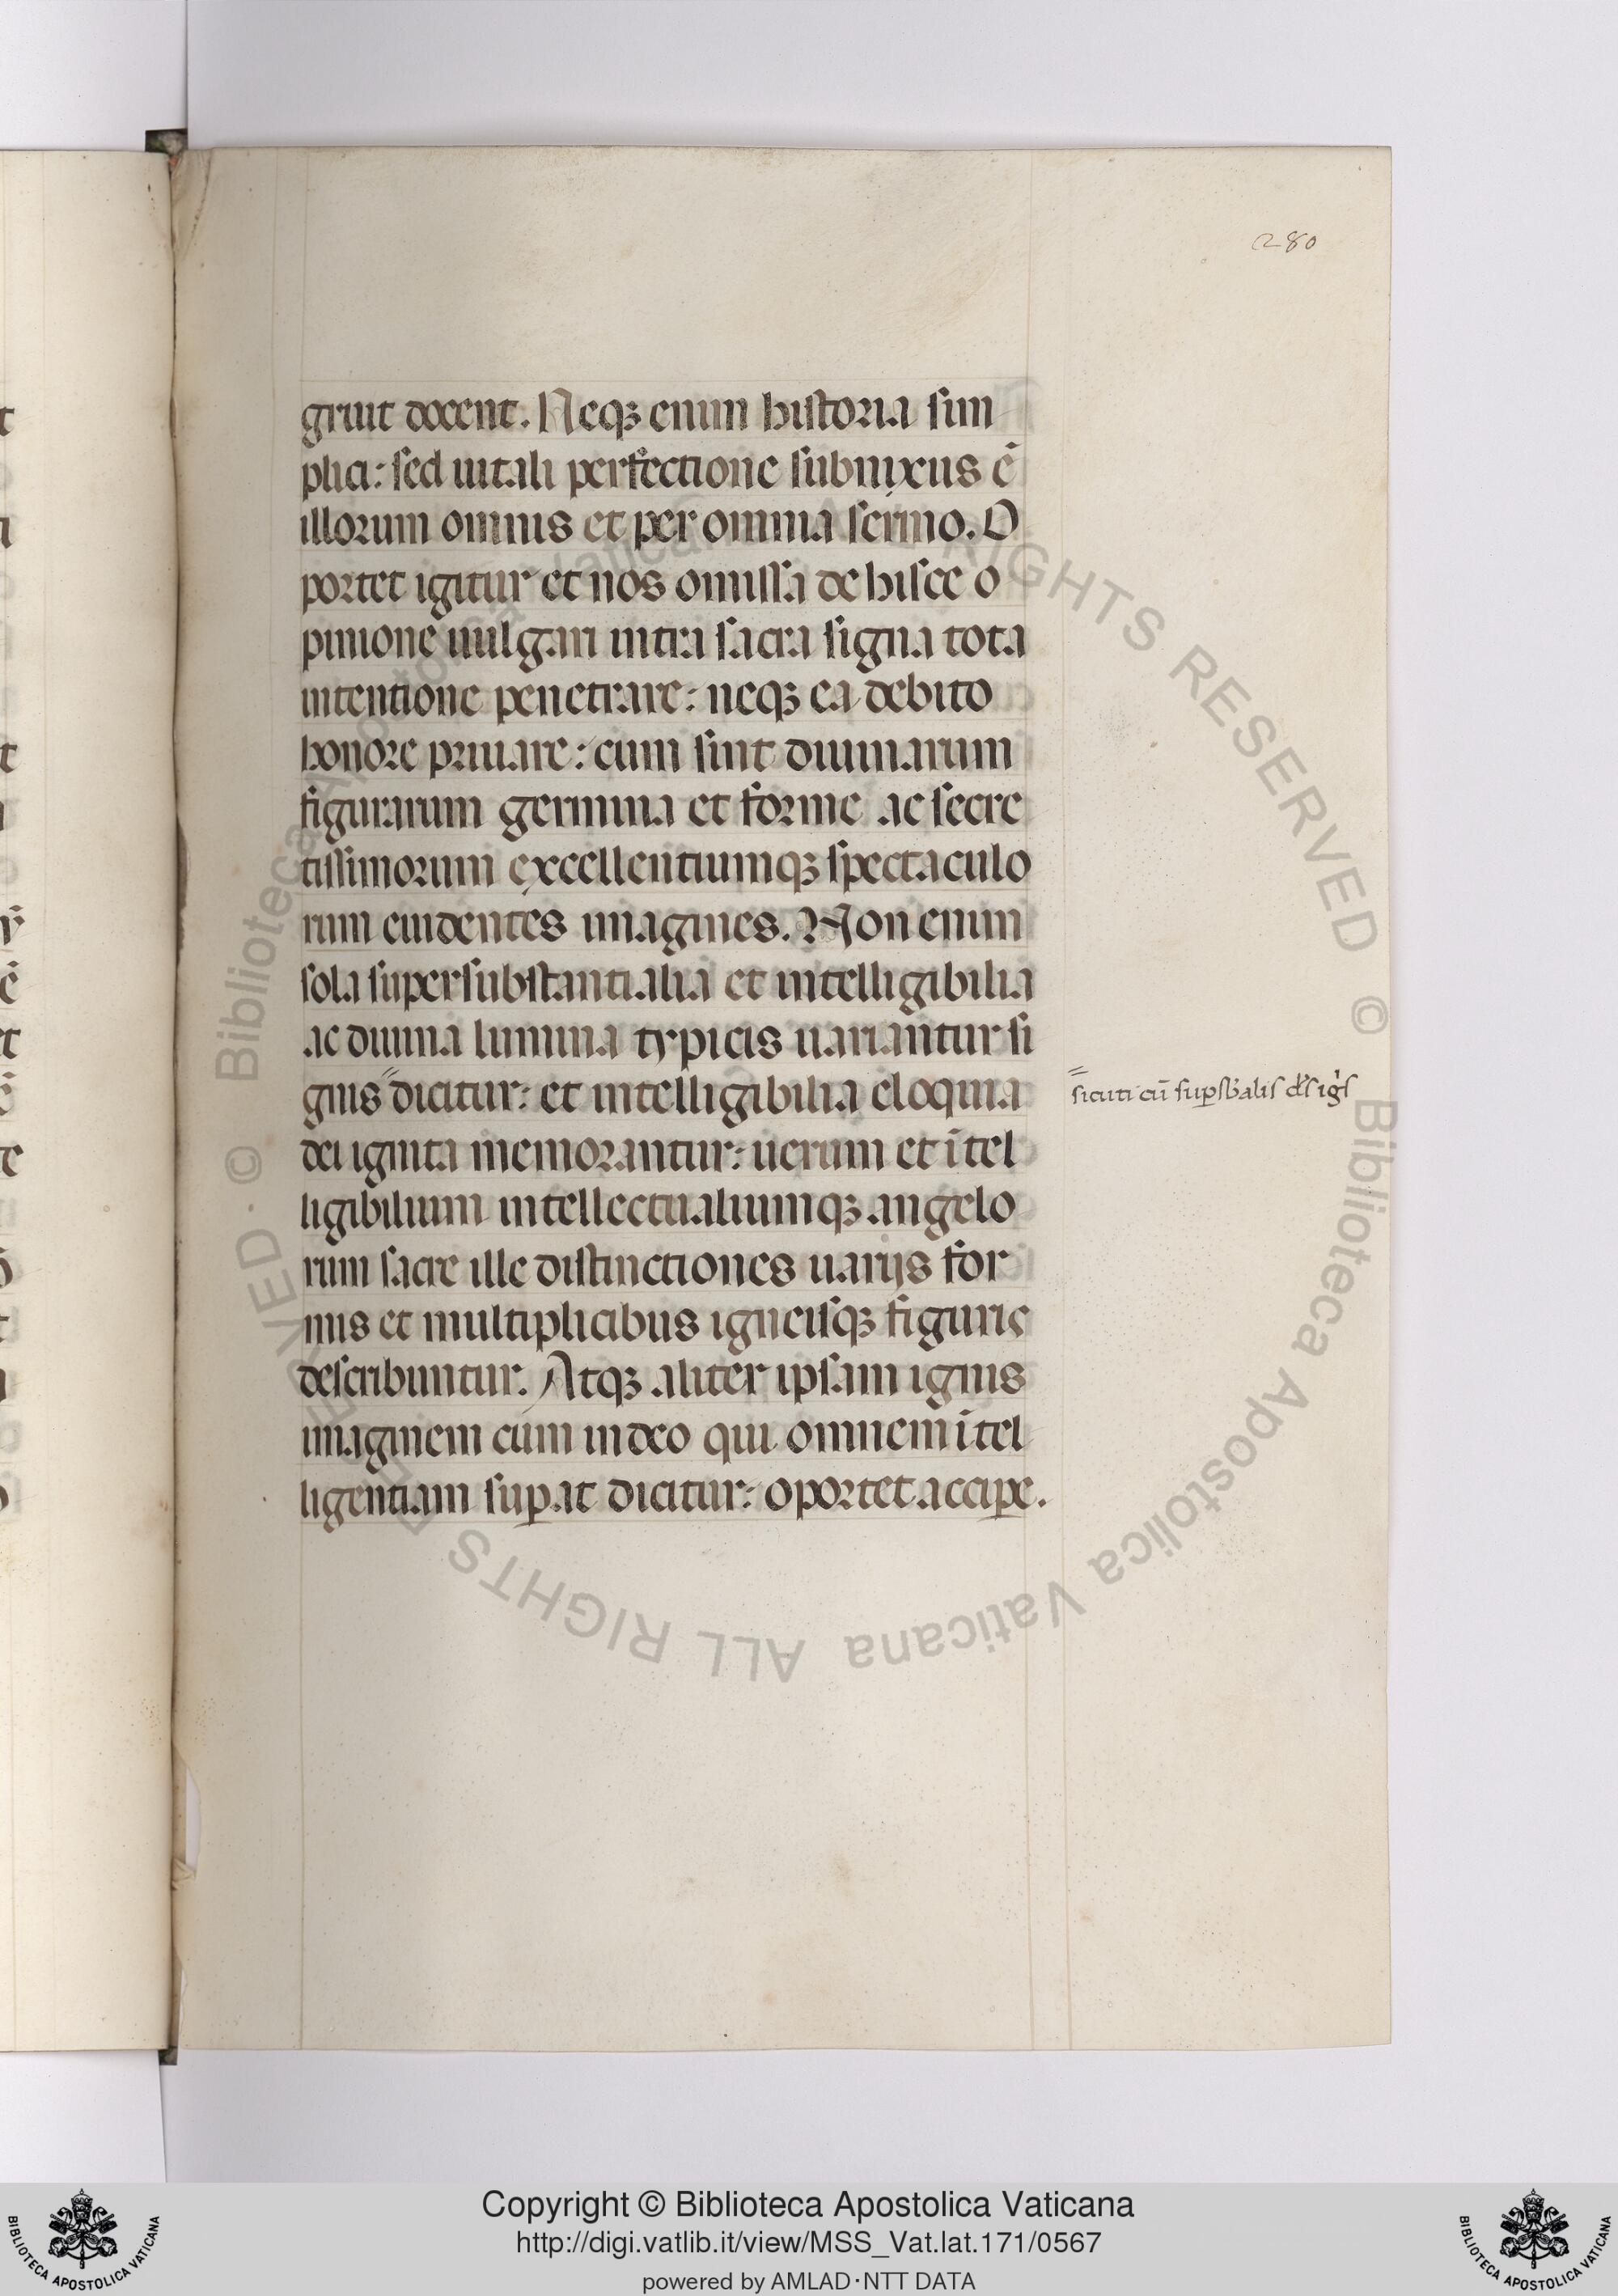 280
gruit docent. Neqꝫ enim historia sim
plici: sed uitali perfectione subnixus ē
illorum omnis et per omnia sermo. O
portet igitur et nos omissa de hisce o
pinione uulgari intra sacra signa tota
intentione penetrare: neqꝫ ea debito
honore priuare: cum sint diuinarum
figurarum germina et forme ac secre
tissimorum excellentiumqꝫ spectaculo
rum euidentes imagines. Non enim
sola supersubstantialia et intelligibilia
ac diuina lumina typicis uariantur si
gnis dicitur: et intelligibilia eloquia
sicuti cū suꝑsb̄alis
dei ignita memorantur: uerum et ītel
ligibilium intellectualiumqꝫ angelo
rum sacre ille distinctiones uarijs for
mis et multiplicibus igneisqꝫ figuris
describuntur. Atqꝫ aliter ipsam ignis
imaginem cum in deo qui omnem ītel
ligentiam suꝑat dicitur: oportet acciꝑe.
© Biblioteca Apostolica Vaticana ALL RIGHTS RESERVED
Copyright © Biblioteca Apostolica Vaticana
http://digi.vatlib.it/view/MSS_Vat.lat.171/0567
powered by AMLAD·NTT DATA
BIBLIOTECA APOSTOLICA VATICANA
BIBLIOTECA APOSTOLICA VATICANA